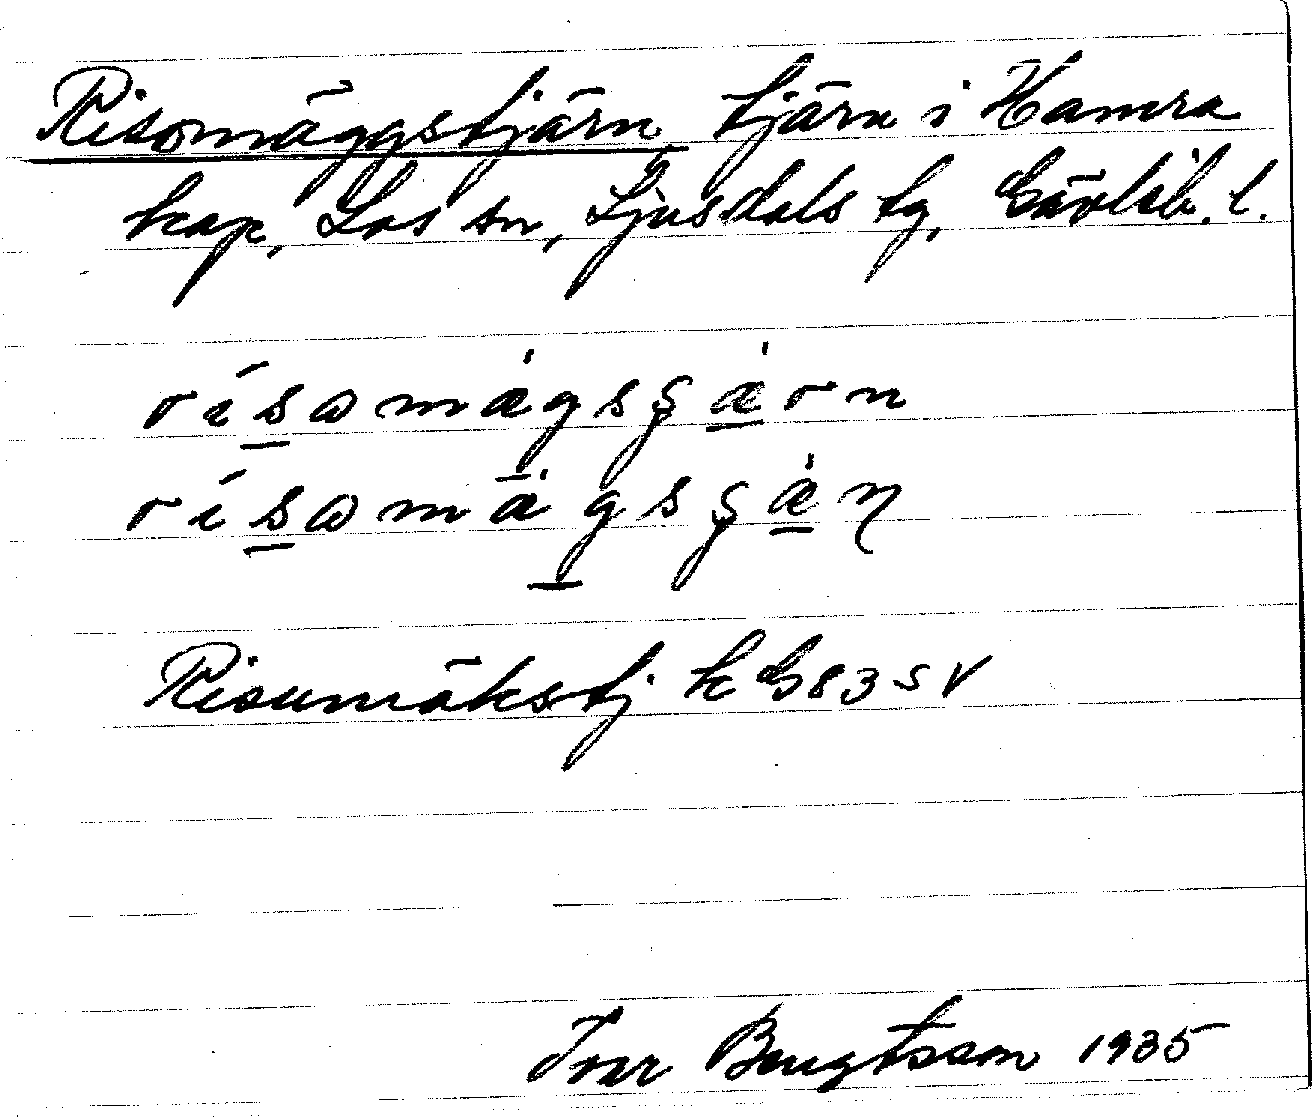 Risomäggstjärn, tjärn i Hamra
kap, Los sn, Ljusdals tg, Gävleb. l.
rísωmägsʂä̀rn
rísωmä̀gsʂä̀ɳ
Risumäkstj k G83 SV
Ivar Bengtsson 1935